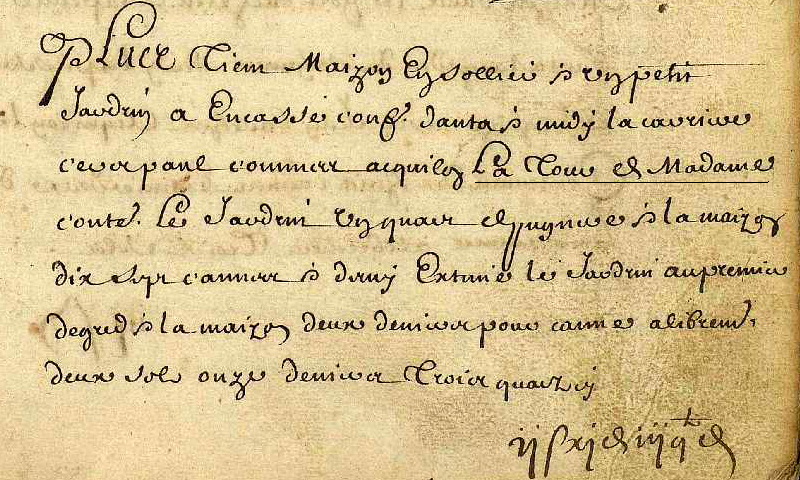 Plus Tient Maizon En sollier & un petit
Jardrin a Encasse conf. d'auta & midy la carriere
cers paul commers acquilon La Tour de Madame
conte. Le Jardrin un quart de pugnere & la maizon
dix sept cannes & demy Extimé le Jardrin au premier
degred & la maizon deux deniers pour canne alibrem.
deux sols onze deniers Trois quartz
ij s xj d iij qt d